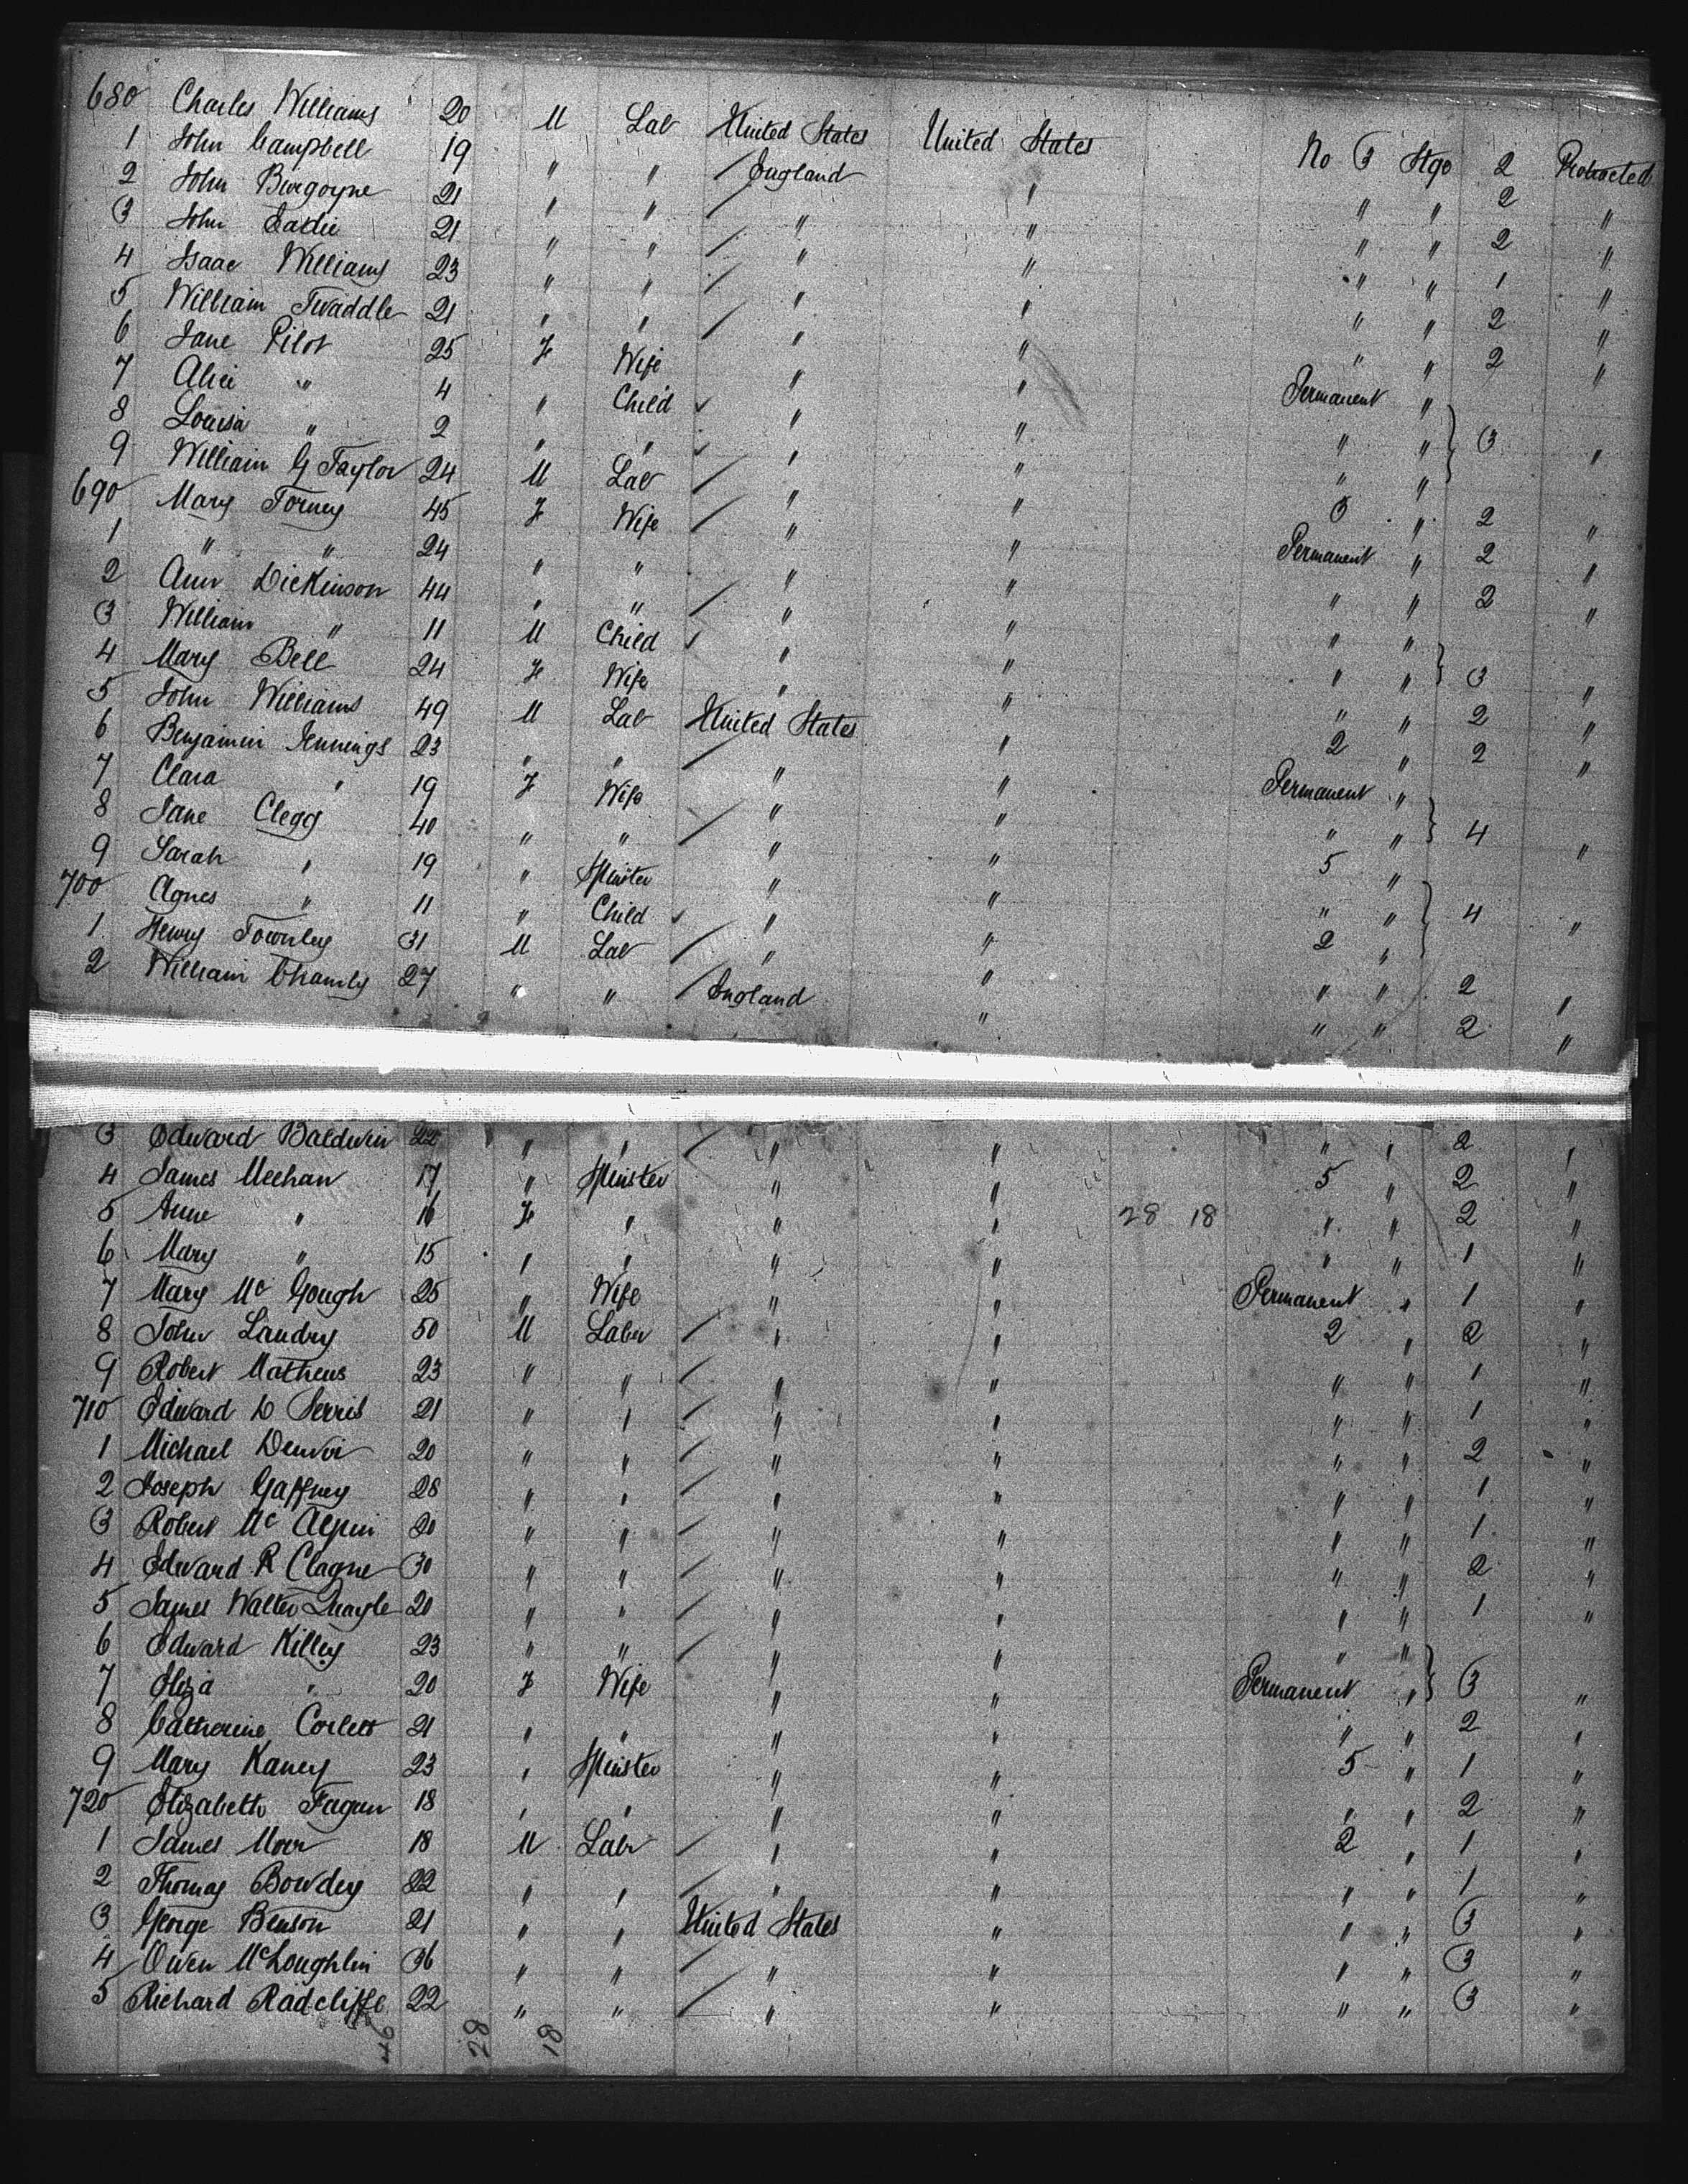 680 Charles Williams 20 M Lab United States United States No 3 Stgo 2 Protracted
1 John Campbell 19 " " England " " " 2 "
2 John Burgoyne 21 " " " " " " 2 "
3 John Eadie 21 " " " " " " 1 "
4 Isaac Williams 23 " " " " " " 2 "
5 William Twaddle 21 " " " " " " 2 "
6 Jane Pilot 25 F Wife " " Permanent "
7 Alice " 4 " Child " " " " 3 "
8 Louisa " 2 " " " " " "
9 William G Taylor 24 M Lab " " 3 " 2 "
690 Mary Torney 45 F Wife " " Permanent " 2 "
1 " " 24 " " " " " " 2 "
2 Ann Dickinson 44 " " " " " "
3 William " 11 M Child " " " " 3 "
4 Mary Bell 24 F Wife " " " " 2 "
5 John Williams 49 M Lab United States " 2 " 2 "
6 Benjamin Jennings 23 " " " " Permanent "
7 Clara " 19 F Wife " " " " 4 "
8 Jane Clegg 40 " " " " 5 "
9 Sarah " 19 " Spinster " " " " 4 "
700 Agnes " 11 " Child " " 2 "
1 Henry Townley 31 M Lab " " " " 2 "
2 William Chamly 27 " " England " " " 2 "
3 Edward Baldwin 22 " " " " " " 2 "
4 James Meehan 17 " Spinster " " 5 " 2 "
5 Anne " 16 F " " " 28 18 " " 2 "
6 Mary " 15 " " " " " " 1 "
7 Mary Mc Gough 25 " Wife " " Permanent " 1 "
8 John Landry 50 M Labr " " 2 " 2 "
9 Robert Mathews 23 " " " " " " 1 "
710 Edward D Serris 21 " " " " " " 1 "
1 Michael Denvir 20 " " " " " " 2 "
2 Joseph Gaffney 28 " " " " " " 1 "
3 Robert Mc Alpin 20 " " " " " " 1 "
4 Edward R Clague 30 " " " " " " 2 "
5 James Walter Quayle 20 " " " " " " 1 "
6 Edward Killey 23 " " " " " "
7 Eliza " 20 F Wife " " Permanent " 3 "
8 Catherine Corlett 21 " " " " " " 2 "
9 Mary Kaney 23 " Spinster " " 5 " 1 "
720 Elizabeth Fagan 18 " " " " " " 2 "
1 James Moor 18 M Labr " " 2 " 1 "
2 Thomas Bowdey 22 " " " " " " 1 "
3 George Benson 21 " " United States " " " 3 "
4 Owen McLoughlin 36 " " " " " " 3 "
5 Richard Radcliffe 22 " " " " " " 3 "
46 28 18